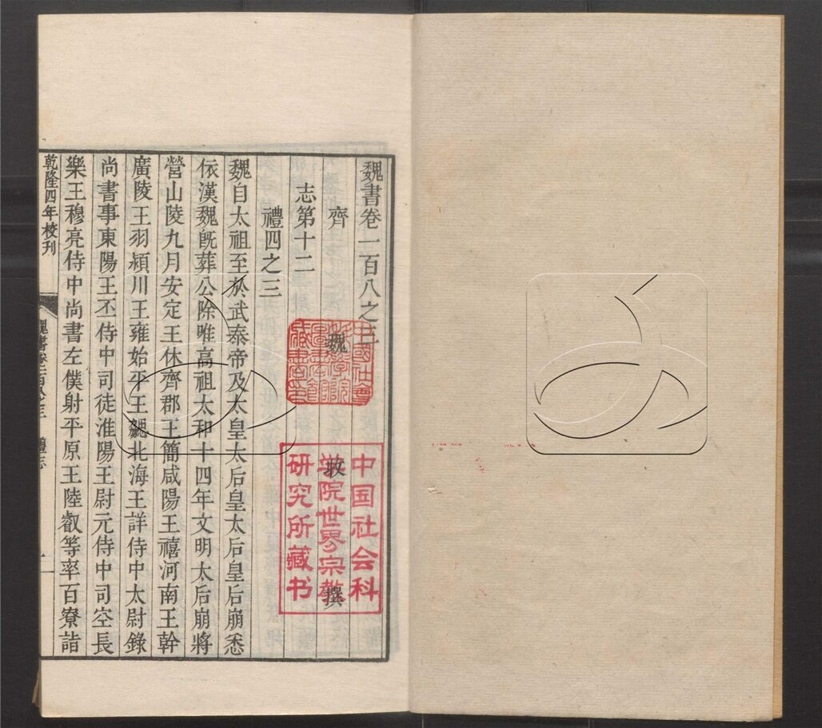 魏書卷一百八之三
齊 魏 收 撰
志第十二
禮四之三
魏自太祖至於武泰帝及太皇太后皇太后皇后崩悉
依漢魏既葬公除唯高祖太和十四年文明太后崩將
營山陵九月安定王休齊郡王簡咸陽王禧河南王幹
廣陵王羽潁川王雍始平王勰北海王詳侍中太尉錄
尚書事東陽王丕侍中司徒淮陽王尉元侍中司空長
樂王穆亮侍中尚書左僕射平原王陸叡等率百寮詣
乾隆四年校刊
魏書卷一百八之三 禮志
一
中国社会科
学院世界宗教
研究所藏书
中國社會
科學院
圖書館
藏書印